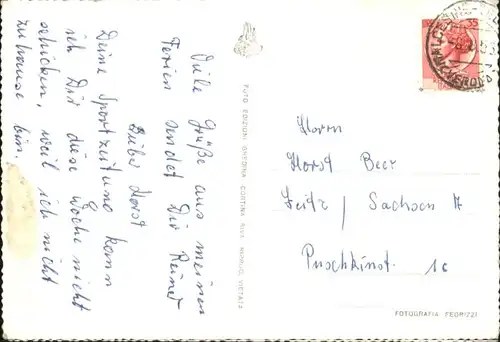 Viele Grüße aus meinen
Ferien sendet Dir Reiner
Lieber Horst
Deine Sportzeitung kann
ich Dir diese Woche nicht
schicken, weil ich nicht
zuhause bin.
FOTO EDIZIONI GHEDINA CORTINA RIVA RIPROD. VIETATA
Herrn
Horst Beer
Zeitz / Sachsen A
Puschkinst. 1c
FOTOGRAFIA FEDRIZZI